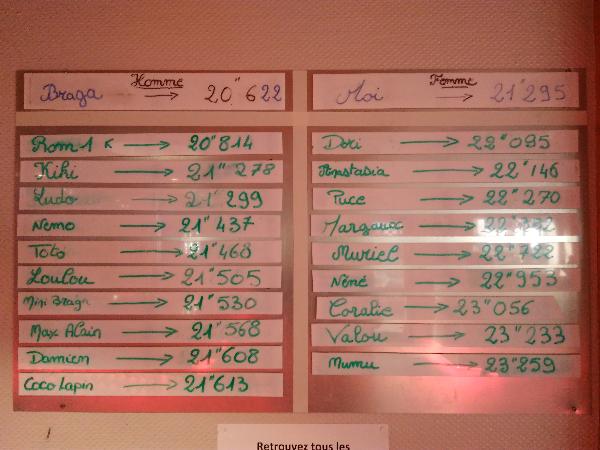 Homme
Braga → 20"622
Rom1 K → 20"814
Kiki → 21"278
Ludo → 21"299
Nemo → 21"437
Toto → 21"468
Loulou → 21"505
Mini Braga → 21"530
Max Alain → 21"568
Damien → 21"608
Coco Lapin → 21"613
Femme
Moi → 21"295
Dori → 22"095
Anastasia → 22"146
Puce → 22"270
Margaux →
Muriel → 22"722
Néné → 22"953
Coralie → 23"056
Valou → 23"233
Mumu → 23"259
Retrouvez tous les